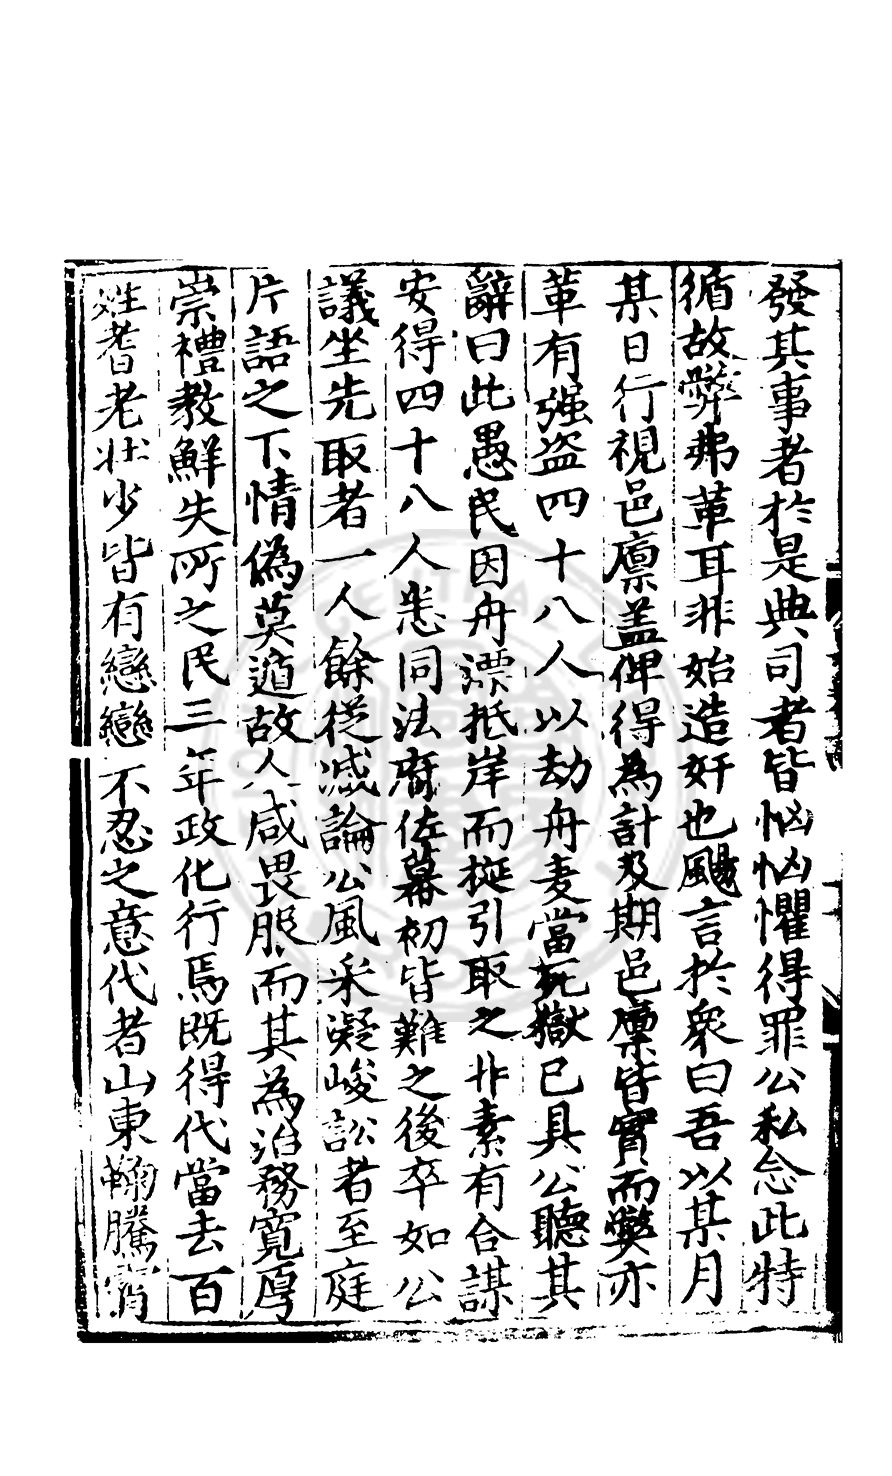 發其事者於是典司者皆恟恟懼得罪公私念此特
循故弊弗革耳非始造奸也颺言於衆曰吾以某月
某日行視邑廪盖俾得為計及期邑廪皆實而弊亦
革有强盗四十八人以劫舟妻當死獄已具公聽其
辭曰此愚民因舟漂抵岸而挻引取之非素有合謀
安得四十八人悉同法府佐幕初皆難之後卒如公
議坐先取者一人餘從减論公風采凝峻訟者至庭
片語之下情偽莫遁故人咸畏服而其為治務寬厚
崇禮教鮮失所之民三年政化行焉既得代當去百
姓耆老壯少皆有戀戀不忍之意代者山東鞠騰霄